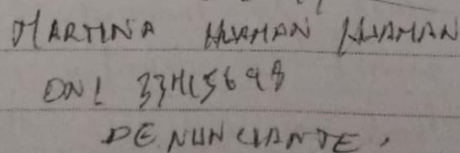 MARTINA HUAMAN HUAMAN
DNI 33415698
DENUNCIANTE.